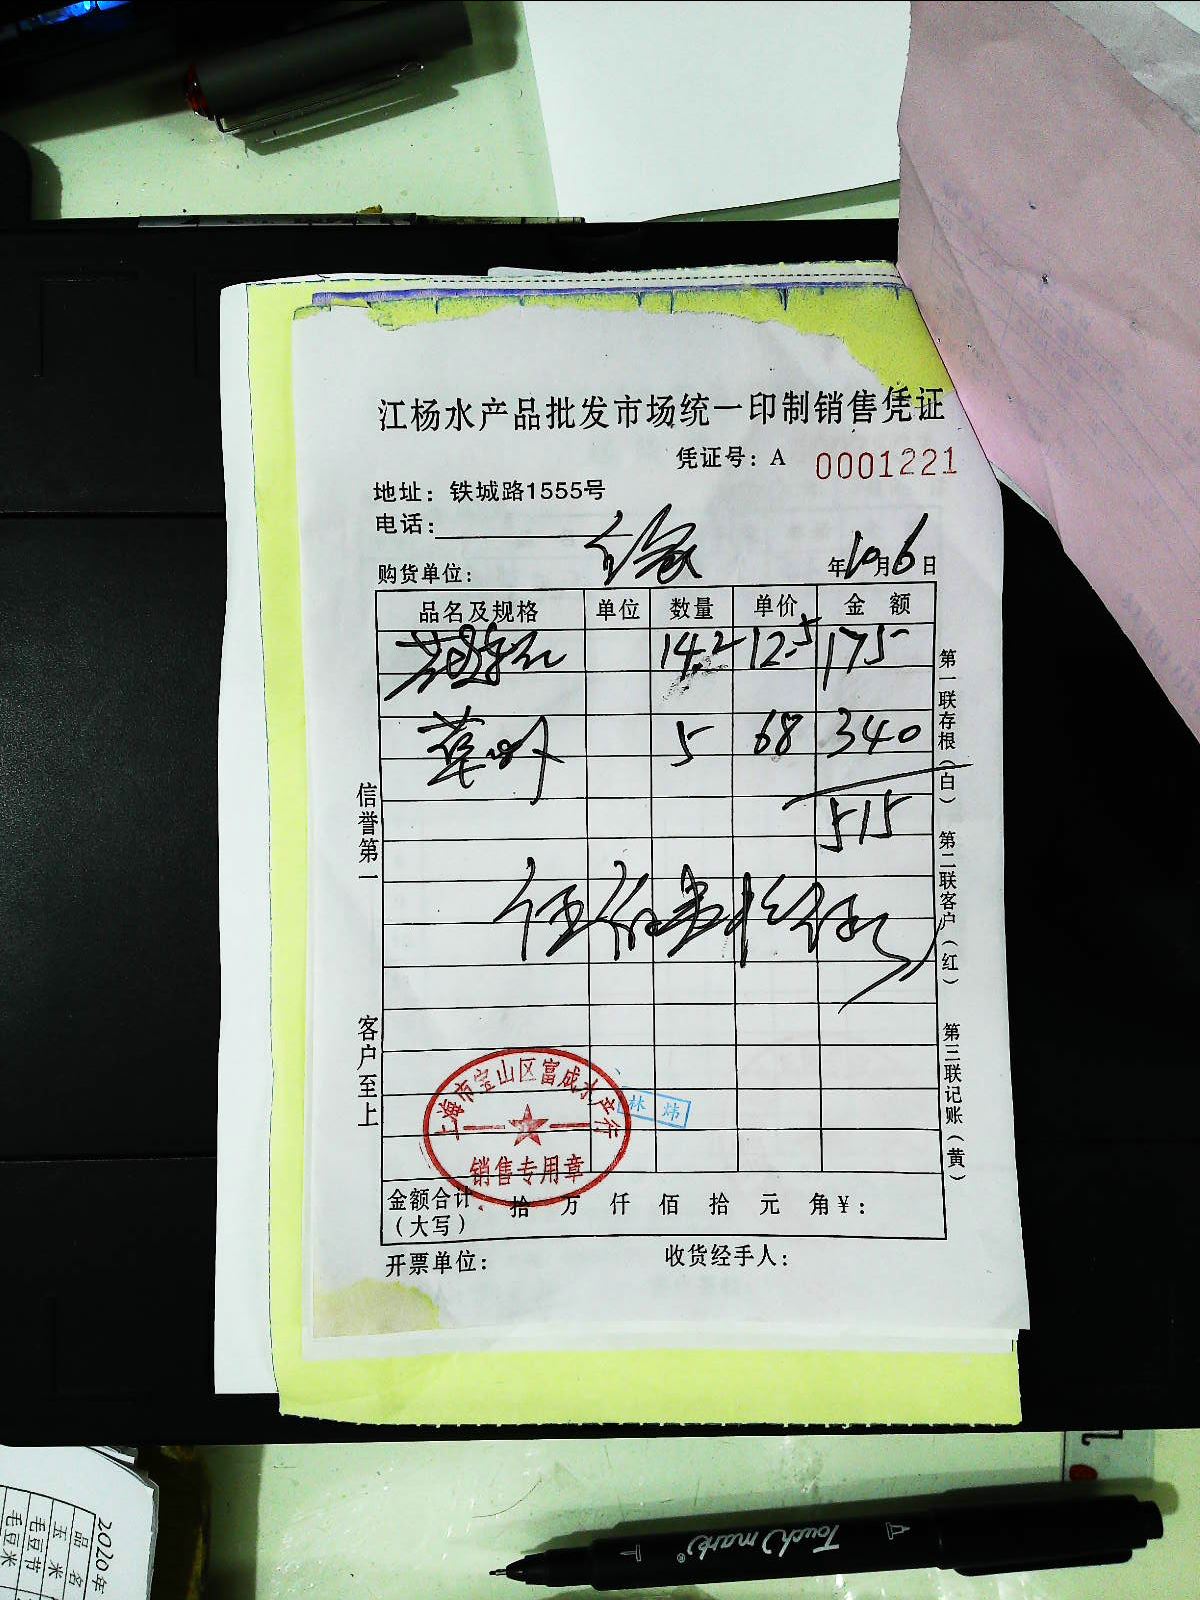 江杨水产品批发市场统一印制销售凭证
凭证号：A 0001221
地址：铁城路1555号
电话：
购货单位： 年10月6日
品名及规格 单位 数量 单价 金 额
14.2 12.5 175
草 5 68 340
515
伍佰壹拾伍
信誉第一
客户至上
第一联存根（白）
第二联客户（红）
第三联记账（黄）
上海市宝山区富成水产行
销售专用章
林 炜
金额合计（大写） 拾 万 仟 佰 拾 元 角￥：
开票单位： 收货经手人：
2020年
品 名
玉 米
毛豆节
毛豆米
Touch mark®
T